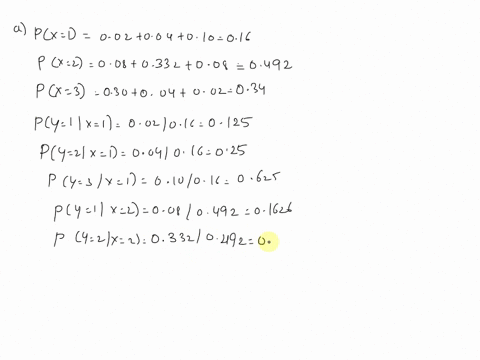 a) P(x=1) = 0.02+0.04+0.10=0.16
P(x=2)=0.08+0.332+0.08=0.492
P(x=3)=0.30+0.04+0.02=0.34
P(y=1|x=1)=0.02/0.16=0.125
P(y=2|x=1)=0.04/0.16=0.25
P(y=3/x=1)=0.10/0.16=0.625
P(y=1|x=2)=0.08/0.492=0.1626
P(y=2|x=2)=0.332/0.492=0.